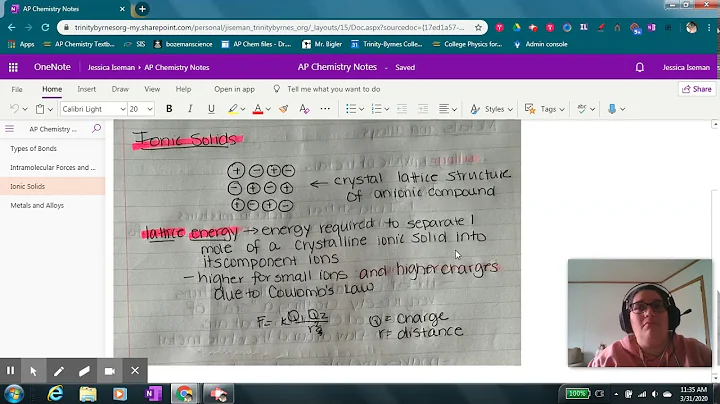 AP Chemistry Notes
trinitybyrnesorg-my.sharepoint.com/personal/jiseman_trinitybyrnes_org/_layouts/15/Doc.aspx?sourcedoc={17ed1a57-
Apps
AP Chemistry Textb...
SIS
bozemanscience
AP Chem files - Dr...
Mr. Bigler
Trinity-Byrnes Colle...
College Physics for...
Admin console
OneNote
Jessica Iseman > AP Chemistry Notes
AP Chemistry Notes - Saved
Jessica Iseman
File
Home
Insert
Draw
View
Help
Open in app
Tell me what you want to do
Share
Calibri Light
20
B I U
A
Styles
Tags
abc
AP Chemistry ...
Types of Bonds
Intramolecular Forces and ...
Ionic Solids
Metals and Alloys
Ionic Solids
+ - + -
- + - +
+ - + -
← crystal lattice structure
of anionic compound
lattice energy → energy required to separate 1
mole of a crystalline ionic solid into
its component ions
- higher for small ions and higher charges
due to Coulomb's Law
F = k Q1 Q2 / r²
Q = charge
r = distance
100%
11:35 AM
3/31/2020